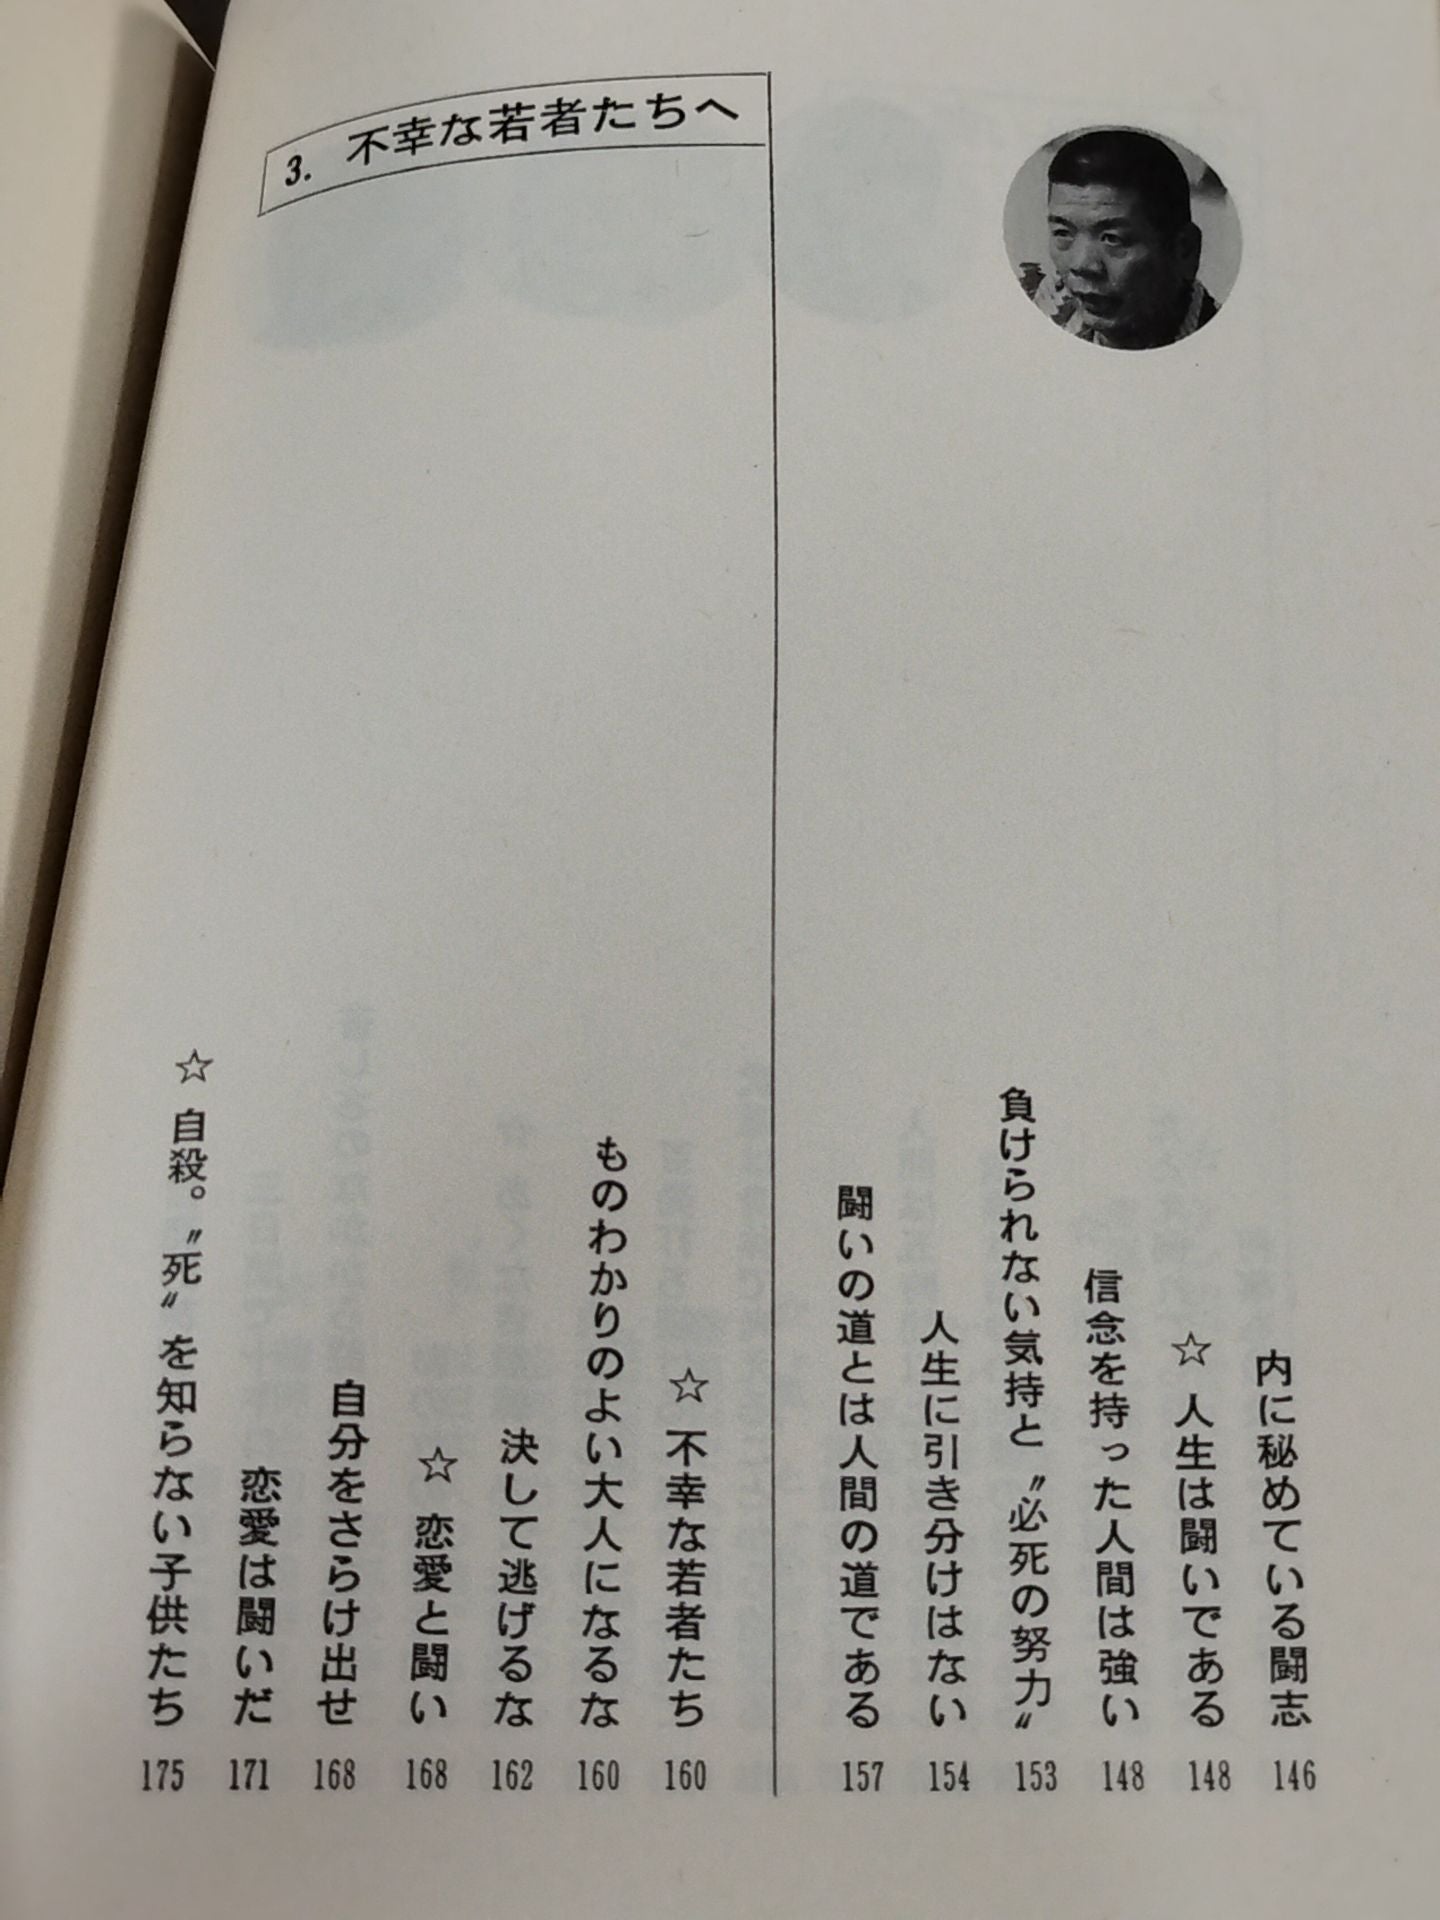 内に秘めている闘志 146
☆ 人生は闘いである 148
信念を持った人間は強い 148
負けられない気持と〝必死の努力〟 153
人生に引き分けはない 154
闘いの道とは人間の道である 157
3. 不幸な若者たちへ
☆ 不幸な若者たち 160
ものわかりのよい大人になるな 160
決して逃げるな 162
☆ 恋愛と闘い 168
自分をさらけ出せ 168
恋愛は闘いだ 171
☆ 自殺。〝死〟を知らない子供たち 175